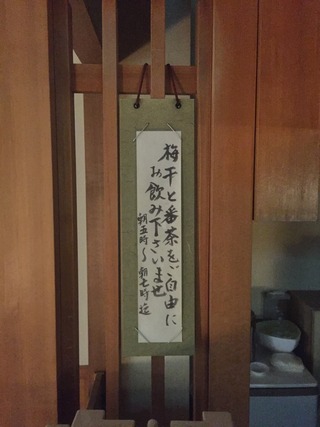 梅干と番茶をご自由に
お飲み下さいませ
朝五時〜朝七時迄